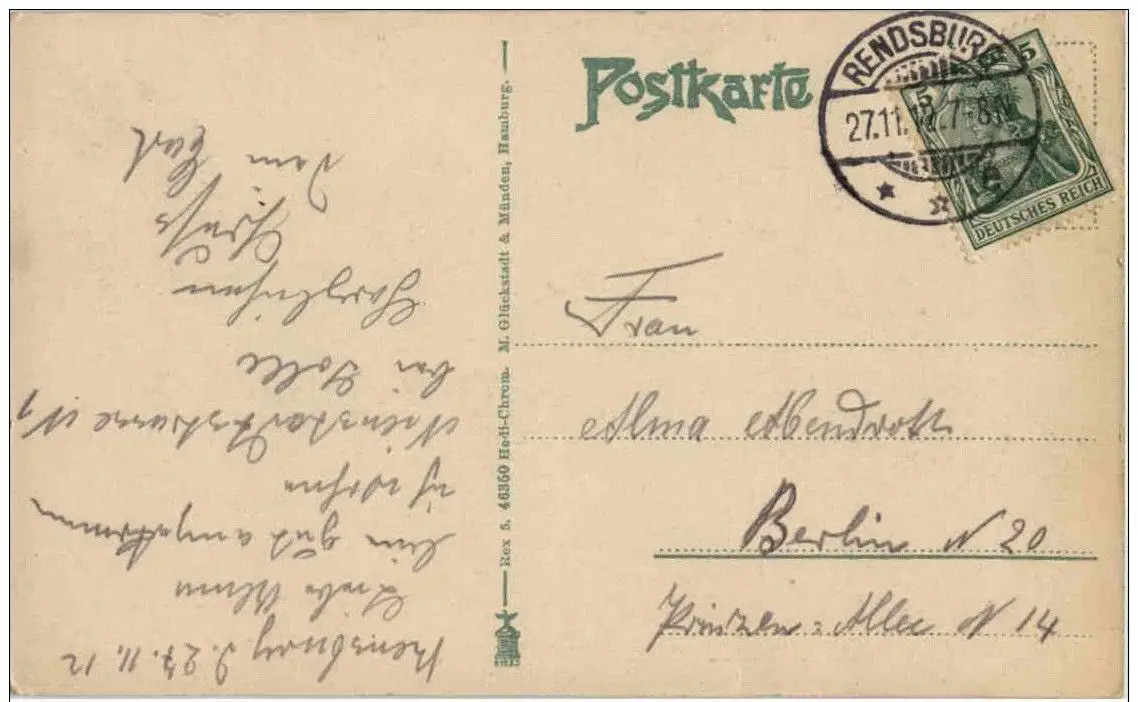 Postkarte
RENDSBURG
27.11.12.7-8N.
5
5
DEUTSCHES REICH
Frau
Alma Abendroth
Berlin N 20
Prinzen=Allee N 14
Rex 5. 46350 Hedi-Chrom. M. Glückstadt & Münden, Hamburg.
1912
Rensburg d. 27.11.12
Liebe Alma
bin gut angekommen
ich wohne
N 1
bei
Herzlichen
Gruß
Dein